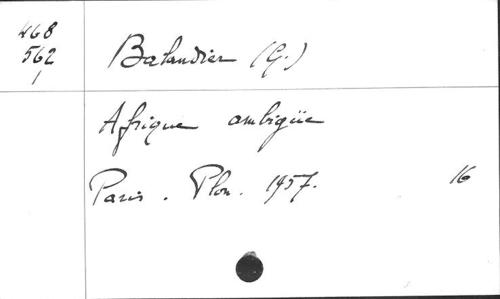 468
562
1
Balandier (G.)
Afrique ambigüe
Paris. Plon. 1957.
16